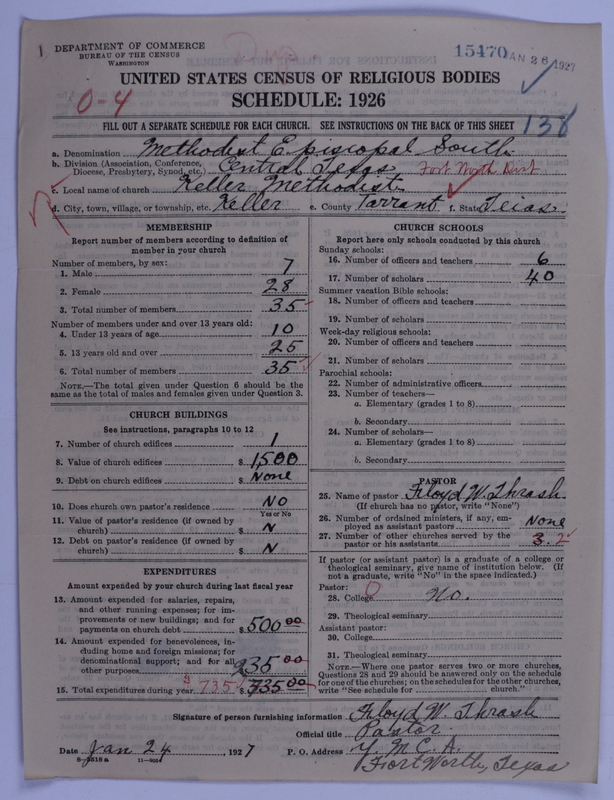 DEPARTMENT OF COMMERCE
BUREAU OF THE CENSUS
WASHINGTON
15470 JAN 26 1927
UNITED STATES CENSUS OF RELIGIOUS BODIES
0-4
SCHEDULE: 1926
FILL OUT A SEPARATE SCHEDULE FOR EACH CHURCH. SEE INSTRUCTIONS ON THE BACK OF THIS SHEET
138
a. Denomination Methodist Episcopal South
b. Division (Association, Conference, Diocese, Presbytery, Synod, etc.) Central Texas Fort Worth Dist
c. Local name of church Keller Methodist
d. City, town, village, or township, etc. Keller e. County Tarrant f. State Texas
MEMBERSHIP
Report number of members according to definition of
member in your church
Number of members, by sex:
1. Male 7
2. Female 28
3. Total number of members 35
Number of members under and over 13 years old:
4. Under 13 years of age 10
5. 13 years old and over 25
6. Total number of members 35
NOTE.—The total given under Question 6 should be
same as the total of males and females given under Question 3.
CHURCH BUILDINGS
See instructions, paragraphs 10 to 12
7. Number of church edifices 1
8. Value of church edifices $ 1500
9. Debt on church edifices $ None
10. Does church own pastor's residence No
Yes or No
11. Value of pastor's residence (if owned by
church) $ N
12. Debt on pastor's residence (if owned by
church) $ N
EXPENDITURES
Amount expended by your church during last fiscal year
13. Amount expended for salaries, repairs,
and other running expenses; for im-
provements or new buildings; and for
payments on church debt $ 500 00
14. Amount expended for benevolences, in-
cluding home and foreign missions; for
denominational support; and for all
other purposes 235 00
15. Total expenditures during year $ 735 $ 735 00
CHURCH SCHOOLS
Report here only schools conducted by this church
Sunday schools:
16. Number of officers and teachers 6
17. Number of scholars 40
Summer vacation Bible schools:
18. Number of officers and teachers
19. Number of scholars
Week-day religious schools:
20. Number of officers and teachers
21. Number of scholars
Parochial schools:
22. Number of administrative officers
23. Number of teachers—
a. Elementary (grades 1 to 8)
b. Secondary
24. Number of scholars—
a. Elementary (grades 1 to 8)
b. Secondary
PASTOR
25. Name of pastor Floyd W. Thrash
(If church has no pastor, write "None")
26. Number of ordained ministers, if any, em-
ployed as assistant pastors None
27. Number of other churches served by the
pastor or his assistants 3. 2
If pastor (or assistant pastor) is a graduate of a college or
theological seminary, give name of institution below. (If
not a graduate, write "No" in the space indicated.)
Pastor:
28. College 0 No.
29. Theological seminary
Assistant pastor:
30. College
31. Theological seminary
NOTE.—Where one pastor serves two or more churches,
Questions 28 and 29 should be answered only on the schedule
for one of the churches; on the schedules for the other churches,
write "See schedule for church."
Signature of person furnishing information Floyd W. Thrash
Official title Pastor
Date Jan 24, 1927 P. O. Address Y. M. C. A.
Fort Worth, Texas